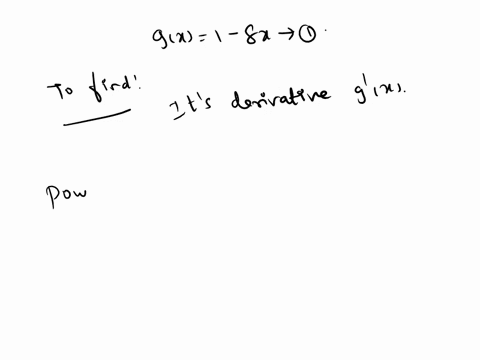 g(x) = 1 - 8x → ①
To find:
It's derivative g'(x).
Pow